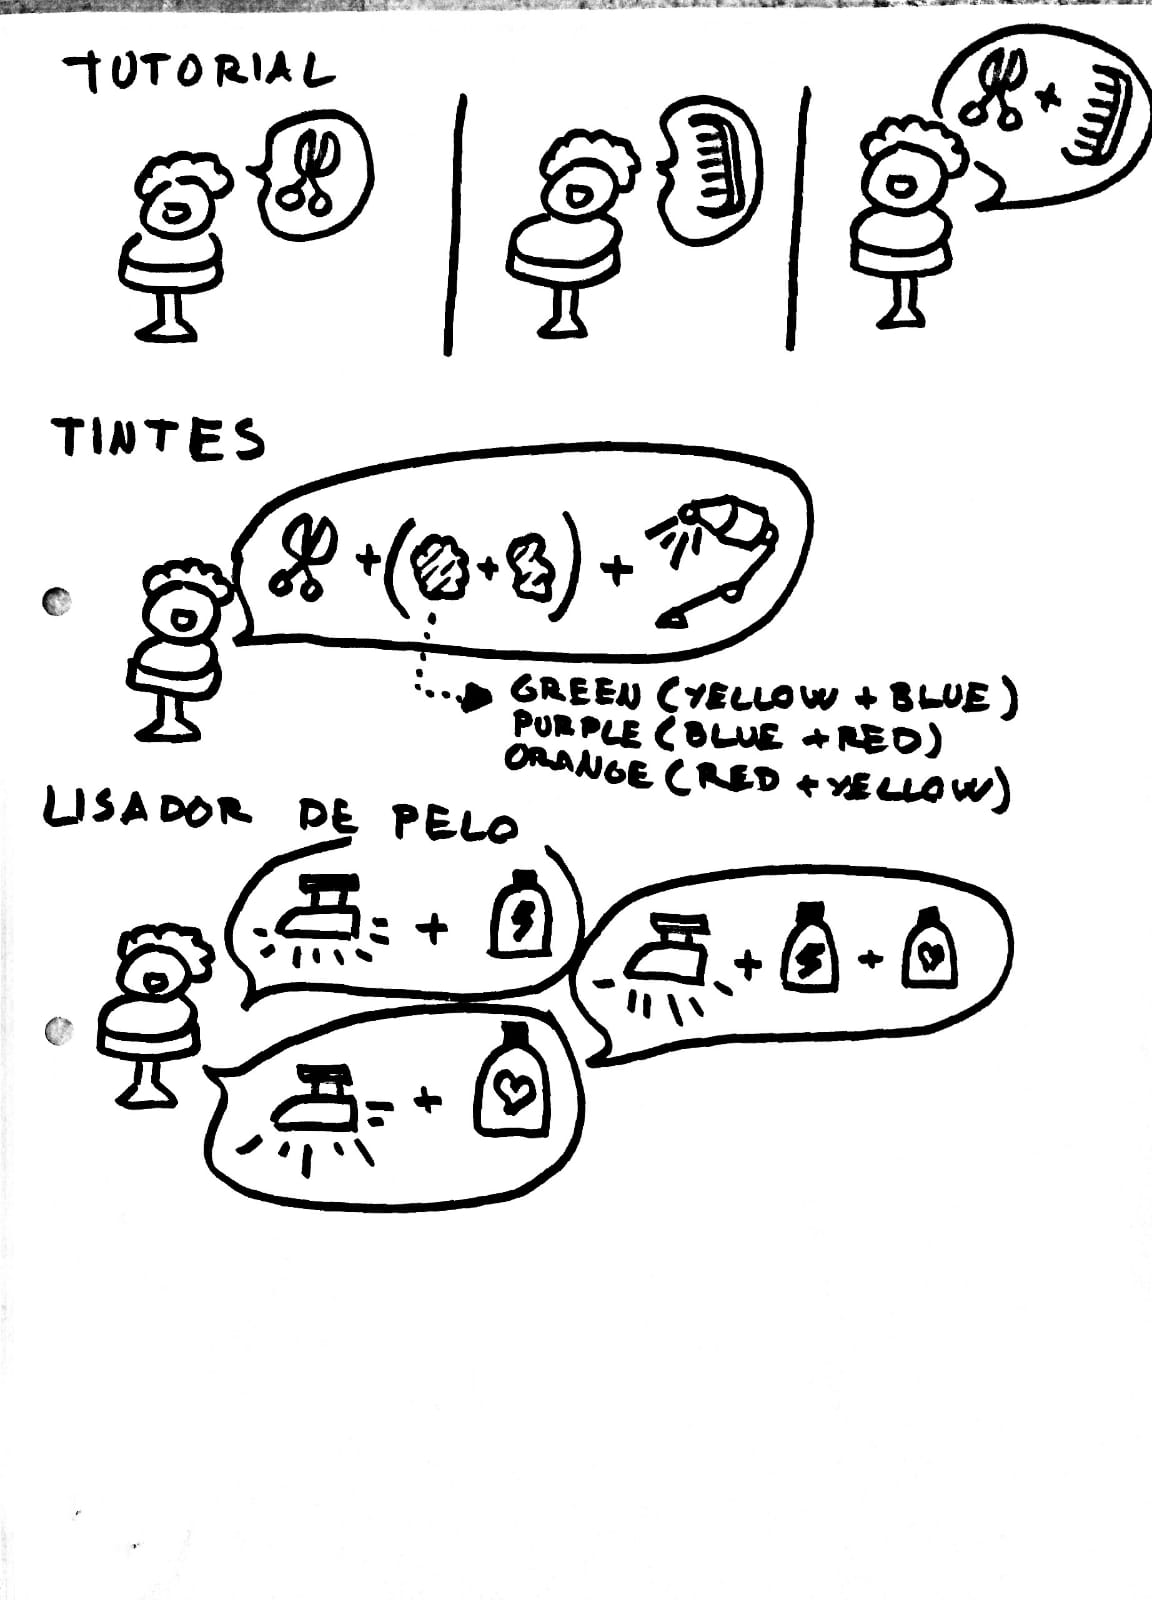 TUTORIAL
TINTES
GREEN (YELLOW + BLUE)
PURPLE (BLUE + RED)
ORANGE (RED + YELLOW)
LISADOR DE PELO